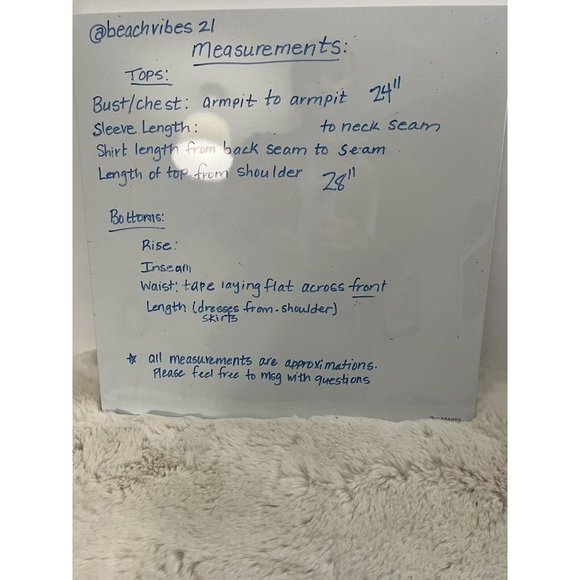 @beachvibes 21
Measurements:
Tops:
Bust/chest: armpit to armpit 24"
Sleeve Length: to neck seam
Shirt length from back seam to seam
Length of top from shoulder 28"
Bottoms:
Rise:
Inseam
Waist: tape laying flat across front
Length (dresses from-shoulder)
skirts
* all measurements are approximations.
Please feel free to msg with questions